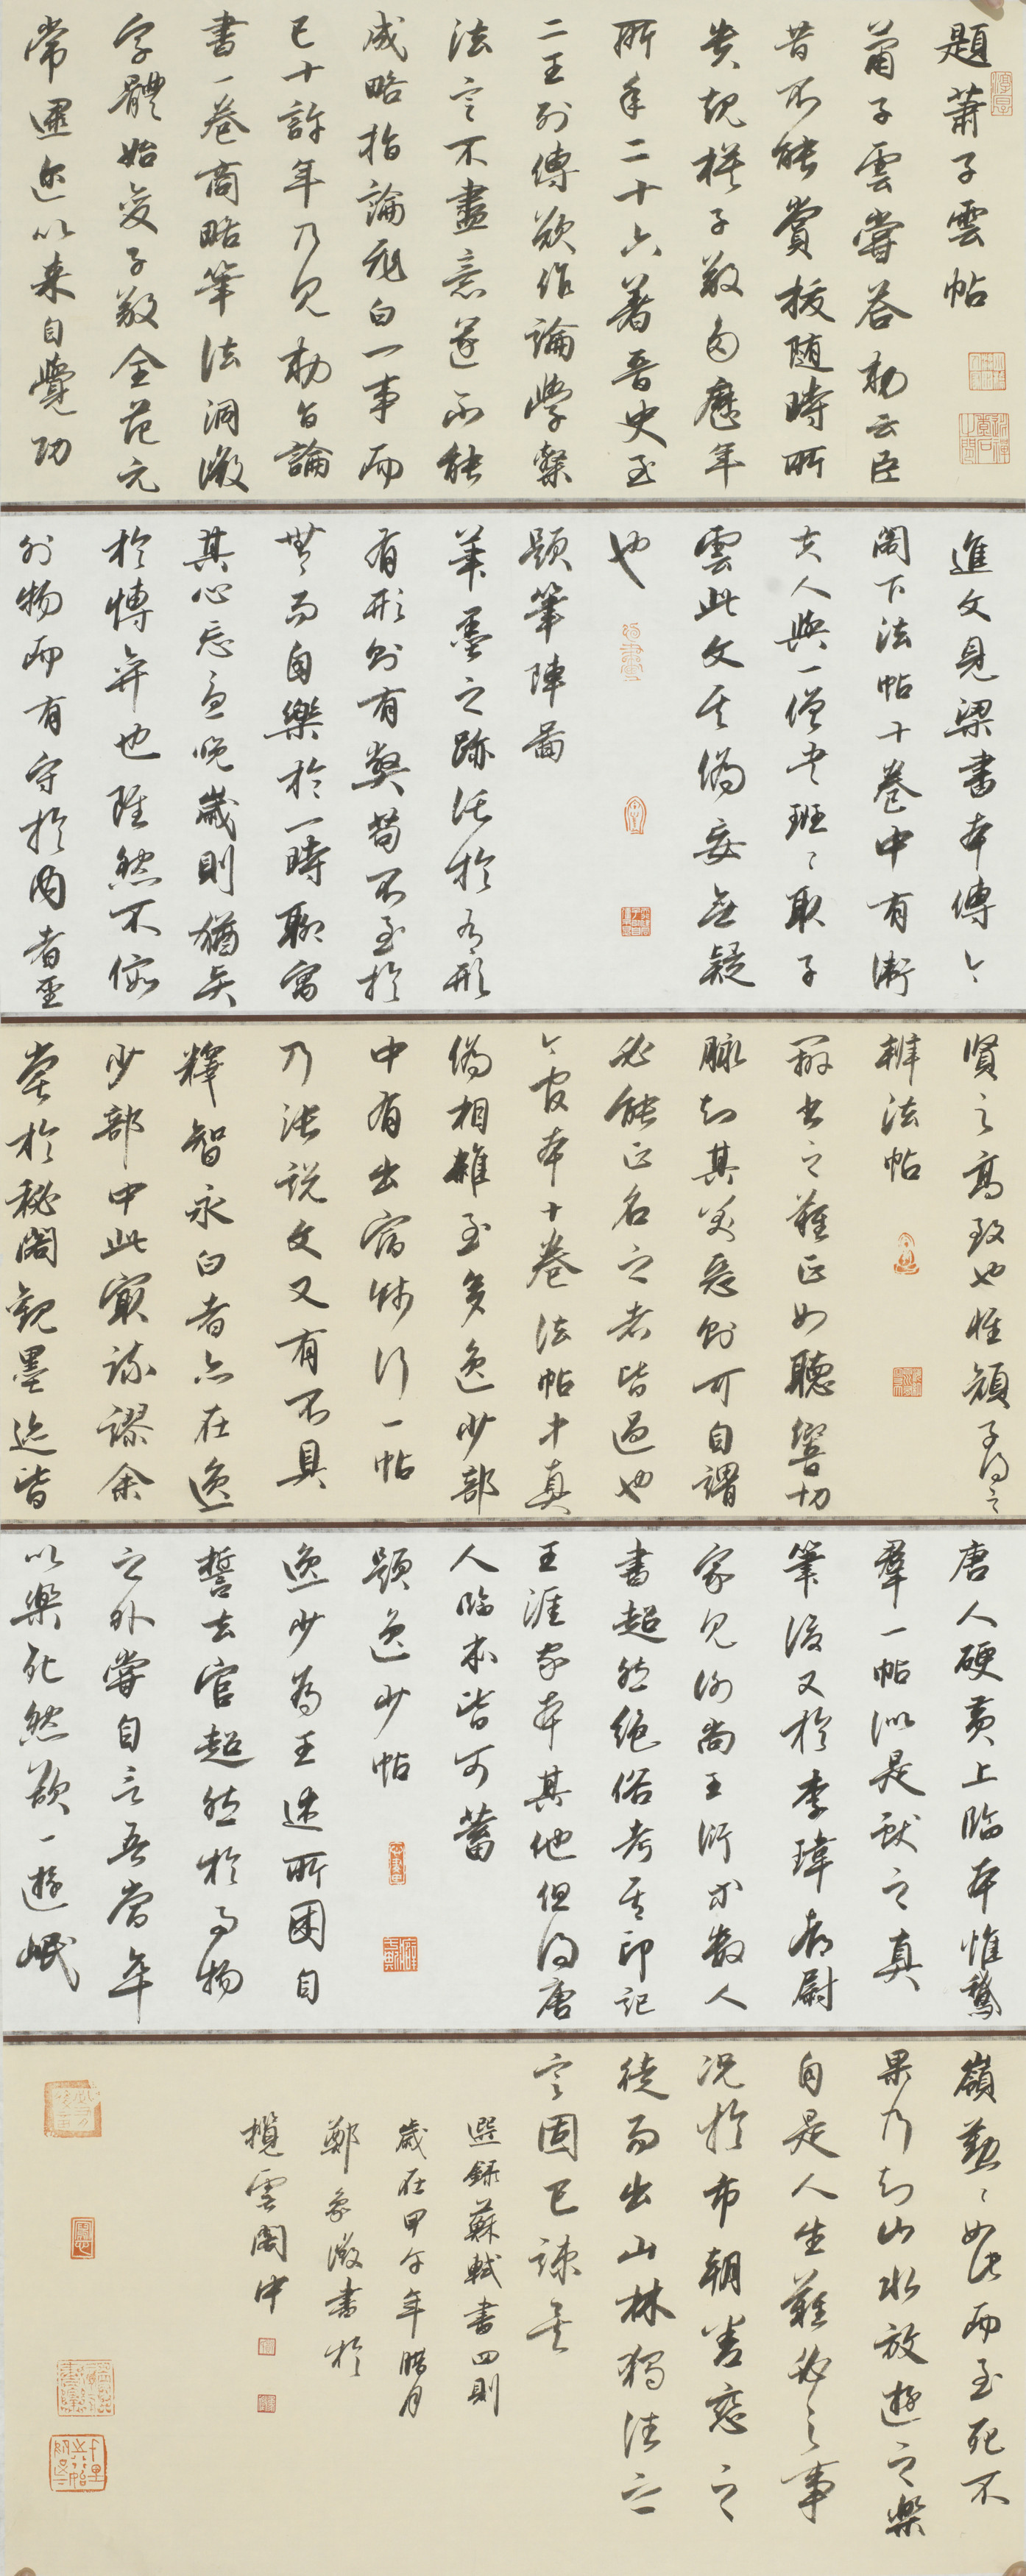 題蕭子雲帖
蕭子雲嘗答勅云臣
昔不能賞拔随時所
貴規模子敬多歷年
所年二十六著晉史至
二王列傳欲作論學隸
法言不盡意遂不能
成略指論飛白一事而
已十許年乃見勅旨論
書一卷商略筆法洞澈
字體始變子敬全范元
常逮迩以来自覺功
進文見梁書本傳今
閣下法帖十卷中有衛
夫人與一僧書班〻取子
雲此文其偽妄無疑
也
題筆陣圖
筆墨之跡託於有形
有形則有弊苟不至於
無而自樂於一時聊寓
其心忘憂晚歲則猶賢
於博弈也雖然不假
外物而有守於内者聖
賢之高致也惟顔子得之
辨法帖
辨書之難正如聽響切
脉知其美惡則可自謂
必能正名之者皆過也
今官本十卷法帖中真
偽相雜至多逸少部
中有出宿餞行一帖
乃張説文又有不具
釋智永白者亦在逸
少部中此最疎謬余
嘗於秘閣觀墨迹皆
唐人硬黄上臨本惟鵝
羣一帖似是獻之真
筆後又於李瑋都尉
家見謝尚王衍等數人
書超然絶俗考其印記
王涯家本其他但得唐
人臨本皆可蓄
題逸少帖
逸少為王述所困自
誓去官超然於事物
之外嘗自言吾當卒
以樂死然欲一遊岷
嶺勤〻如此而至死不
果乃知山水放遊之樂
自是人生難必之事
况於市朝眷戀之
徒而出山林獨往之
言固已疎矣
選錄蘇軾書四則
歲在甲午年腊月
鄭象激書於
攬雲閣中